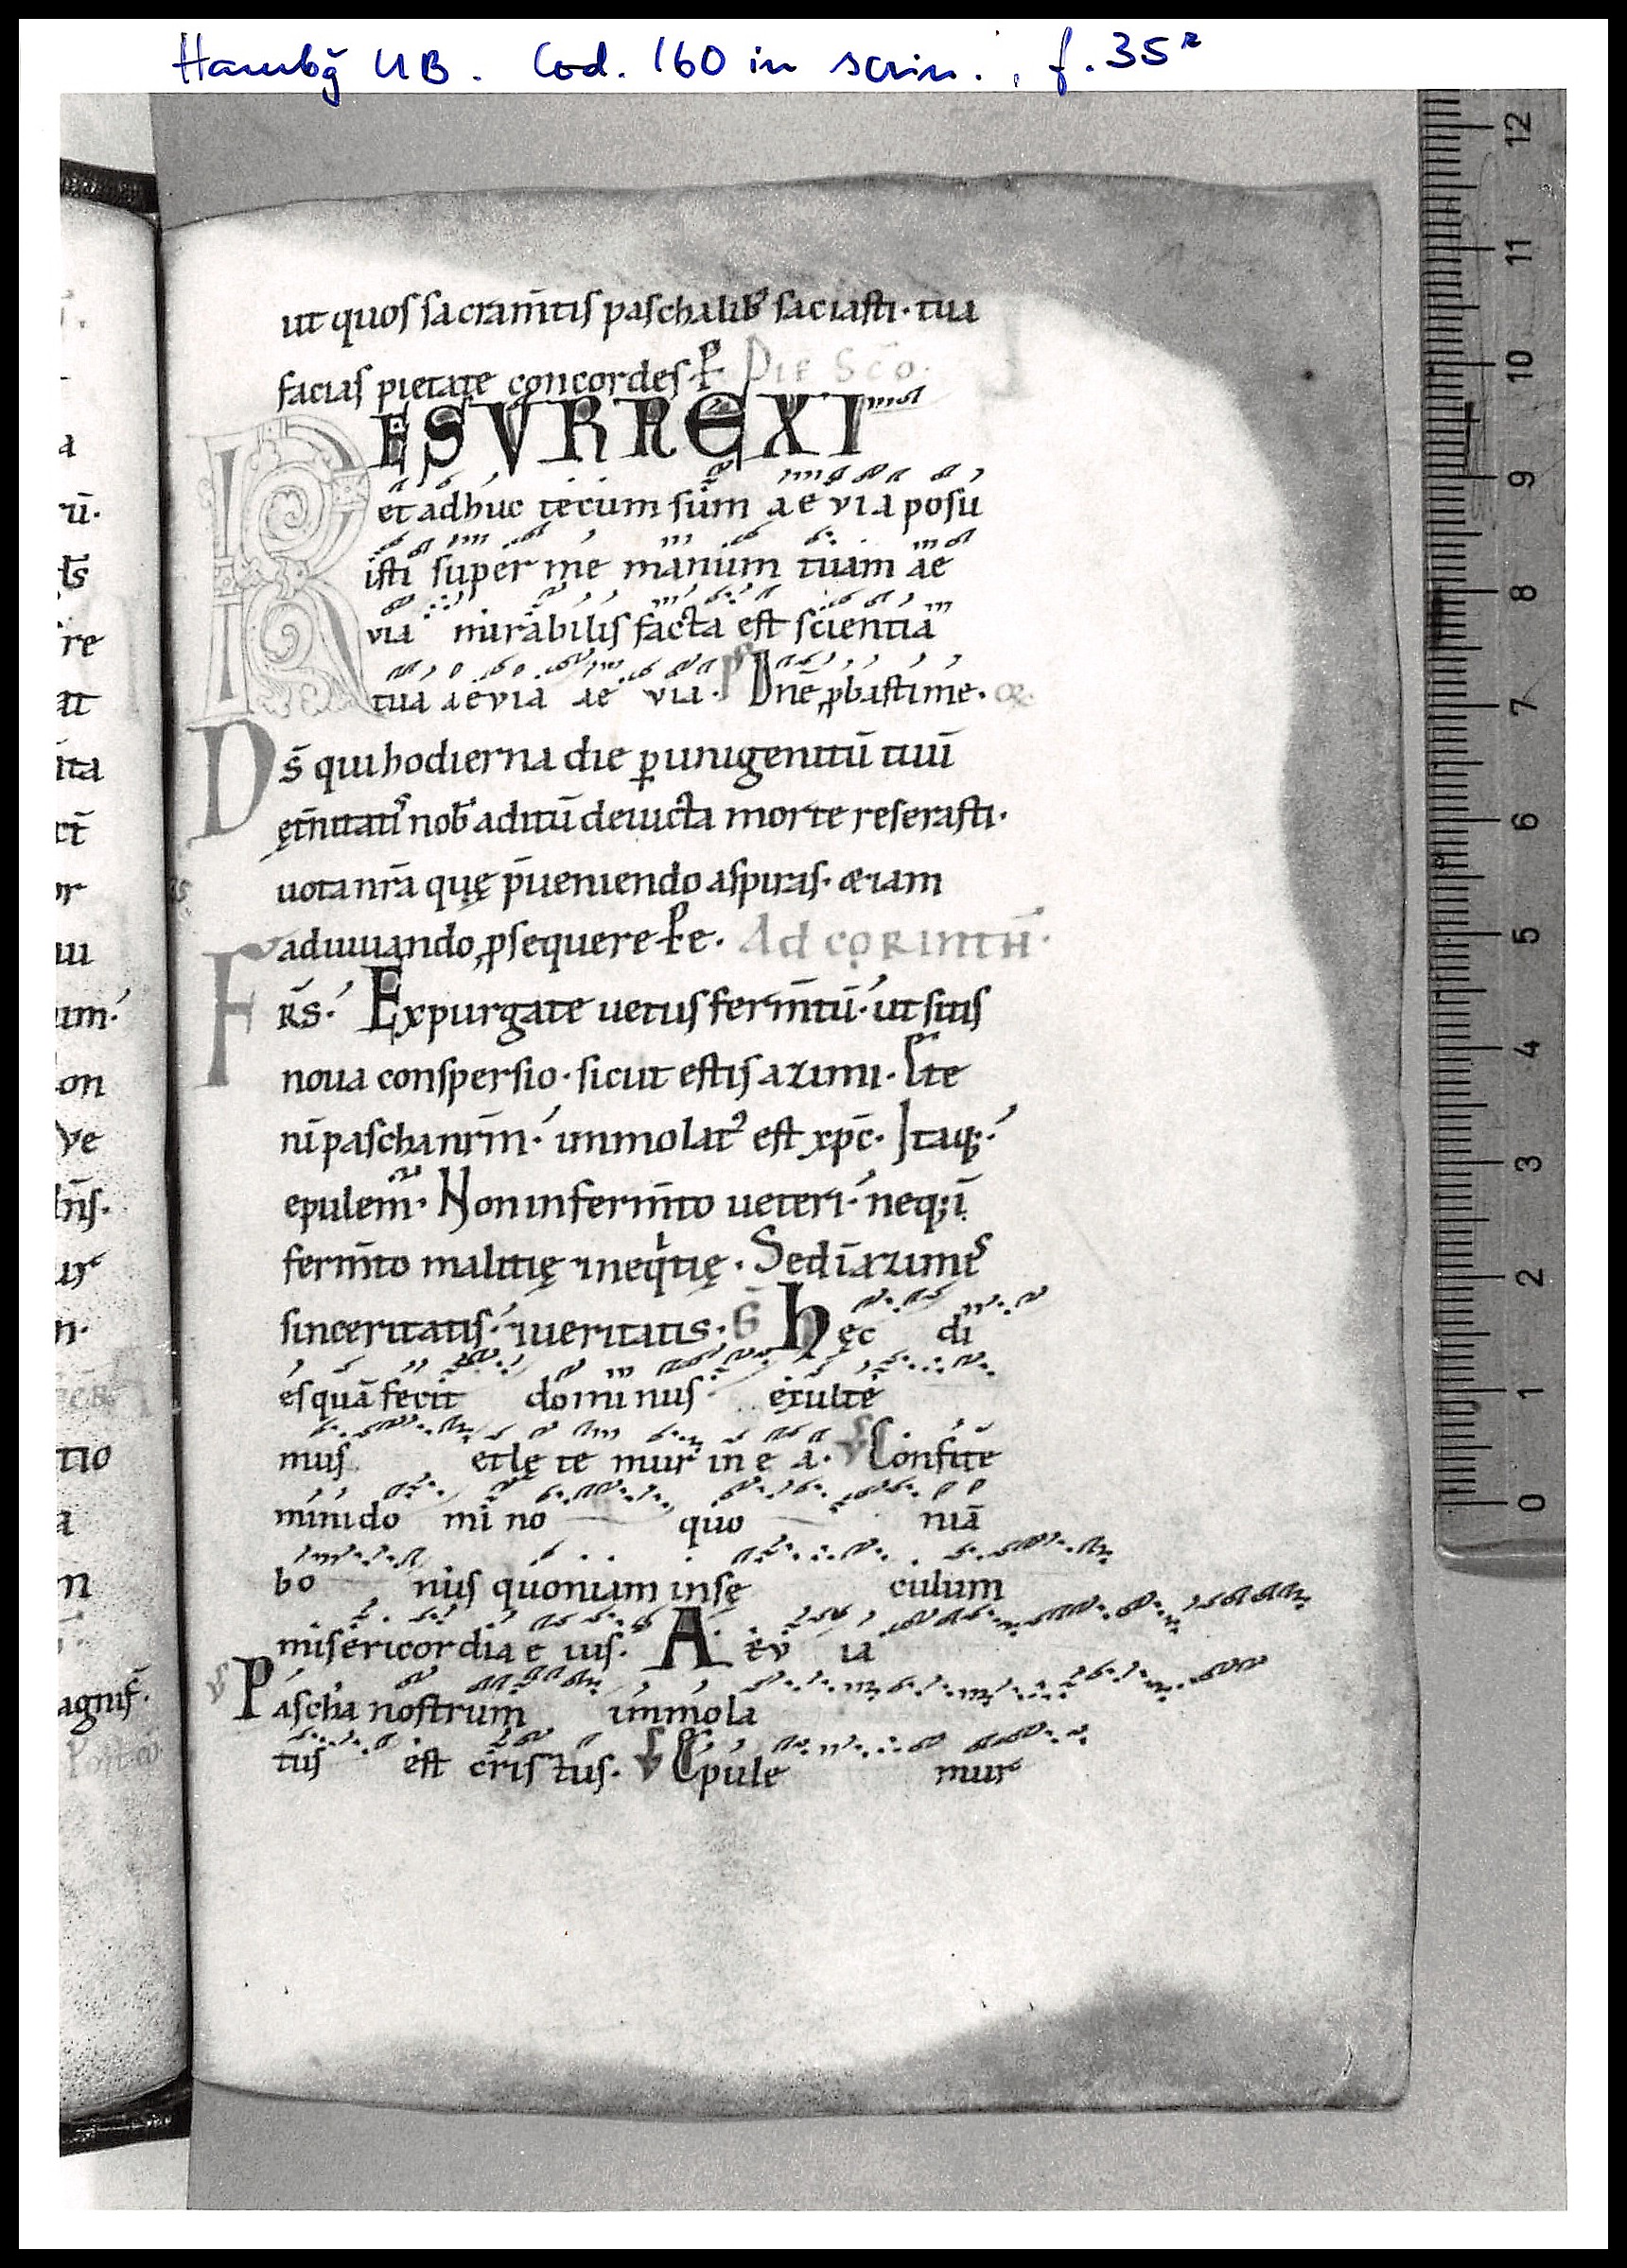 Hambg̃ UB. Cod. 160 in scrin., f. 35ʳ
ut quos sacram̄tis paschalibꝰ saciasti· tua
facias pietate concordes· P̲ Die Sc̄o.
RESURREXI
et adhuc tecum sum aevia posu
isti super me manum tuam ae
via mirabilis facta est scientia
tua aevia ae via· Ps Dn̄e ꝓbasti me· &
Ds̄ qui hodierna die ꝑ unigenitū tuū
ęt̄nitatis nob̄ aditū deuicta morte reserasti·
uota nr̄a quę p̄ueniendo aspiras· &iam
adiuuando ꝓsequere P̲ e· Ad CORINTH̄·
FRS̄· Expurgate uetus ferm̄tū· ut sitis
noua conspersio· sicut estis azimi· Ete
ni̅ pascha nr̄m· immolatꝰ est xpc̄· Itaq;
epulem̄· Non in ferm̄to ueteri· neq; ī
ferm̄to malitię ⁊ neqͥtię· Sed ī azimis
sinceritatis· ⁊ ueritatis· G̅ hęc di
es quā fecit dominus exulte
mus et lę te mur in e a· V Confite
mini do mi no quo niā
bo nus quoniam in sę culum
misericordia e ius· A ev ia
V Pascha nostrum immola
tus est cris tus· V Epule mur
a
ū·
re
ita
or
um·
on
ve
n̄s·
tio
a
n
agnif̄·
12
11
10
9
8
7
6
5
4
3
2
1
0